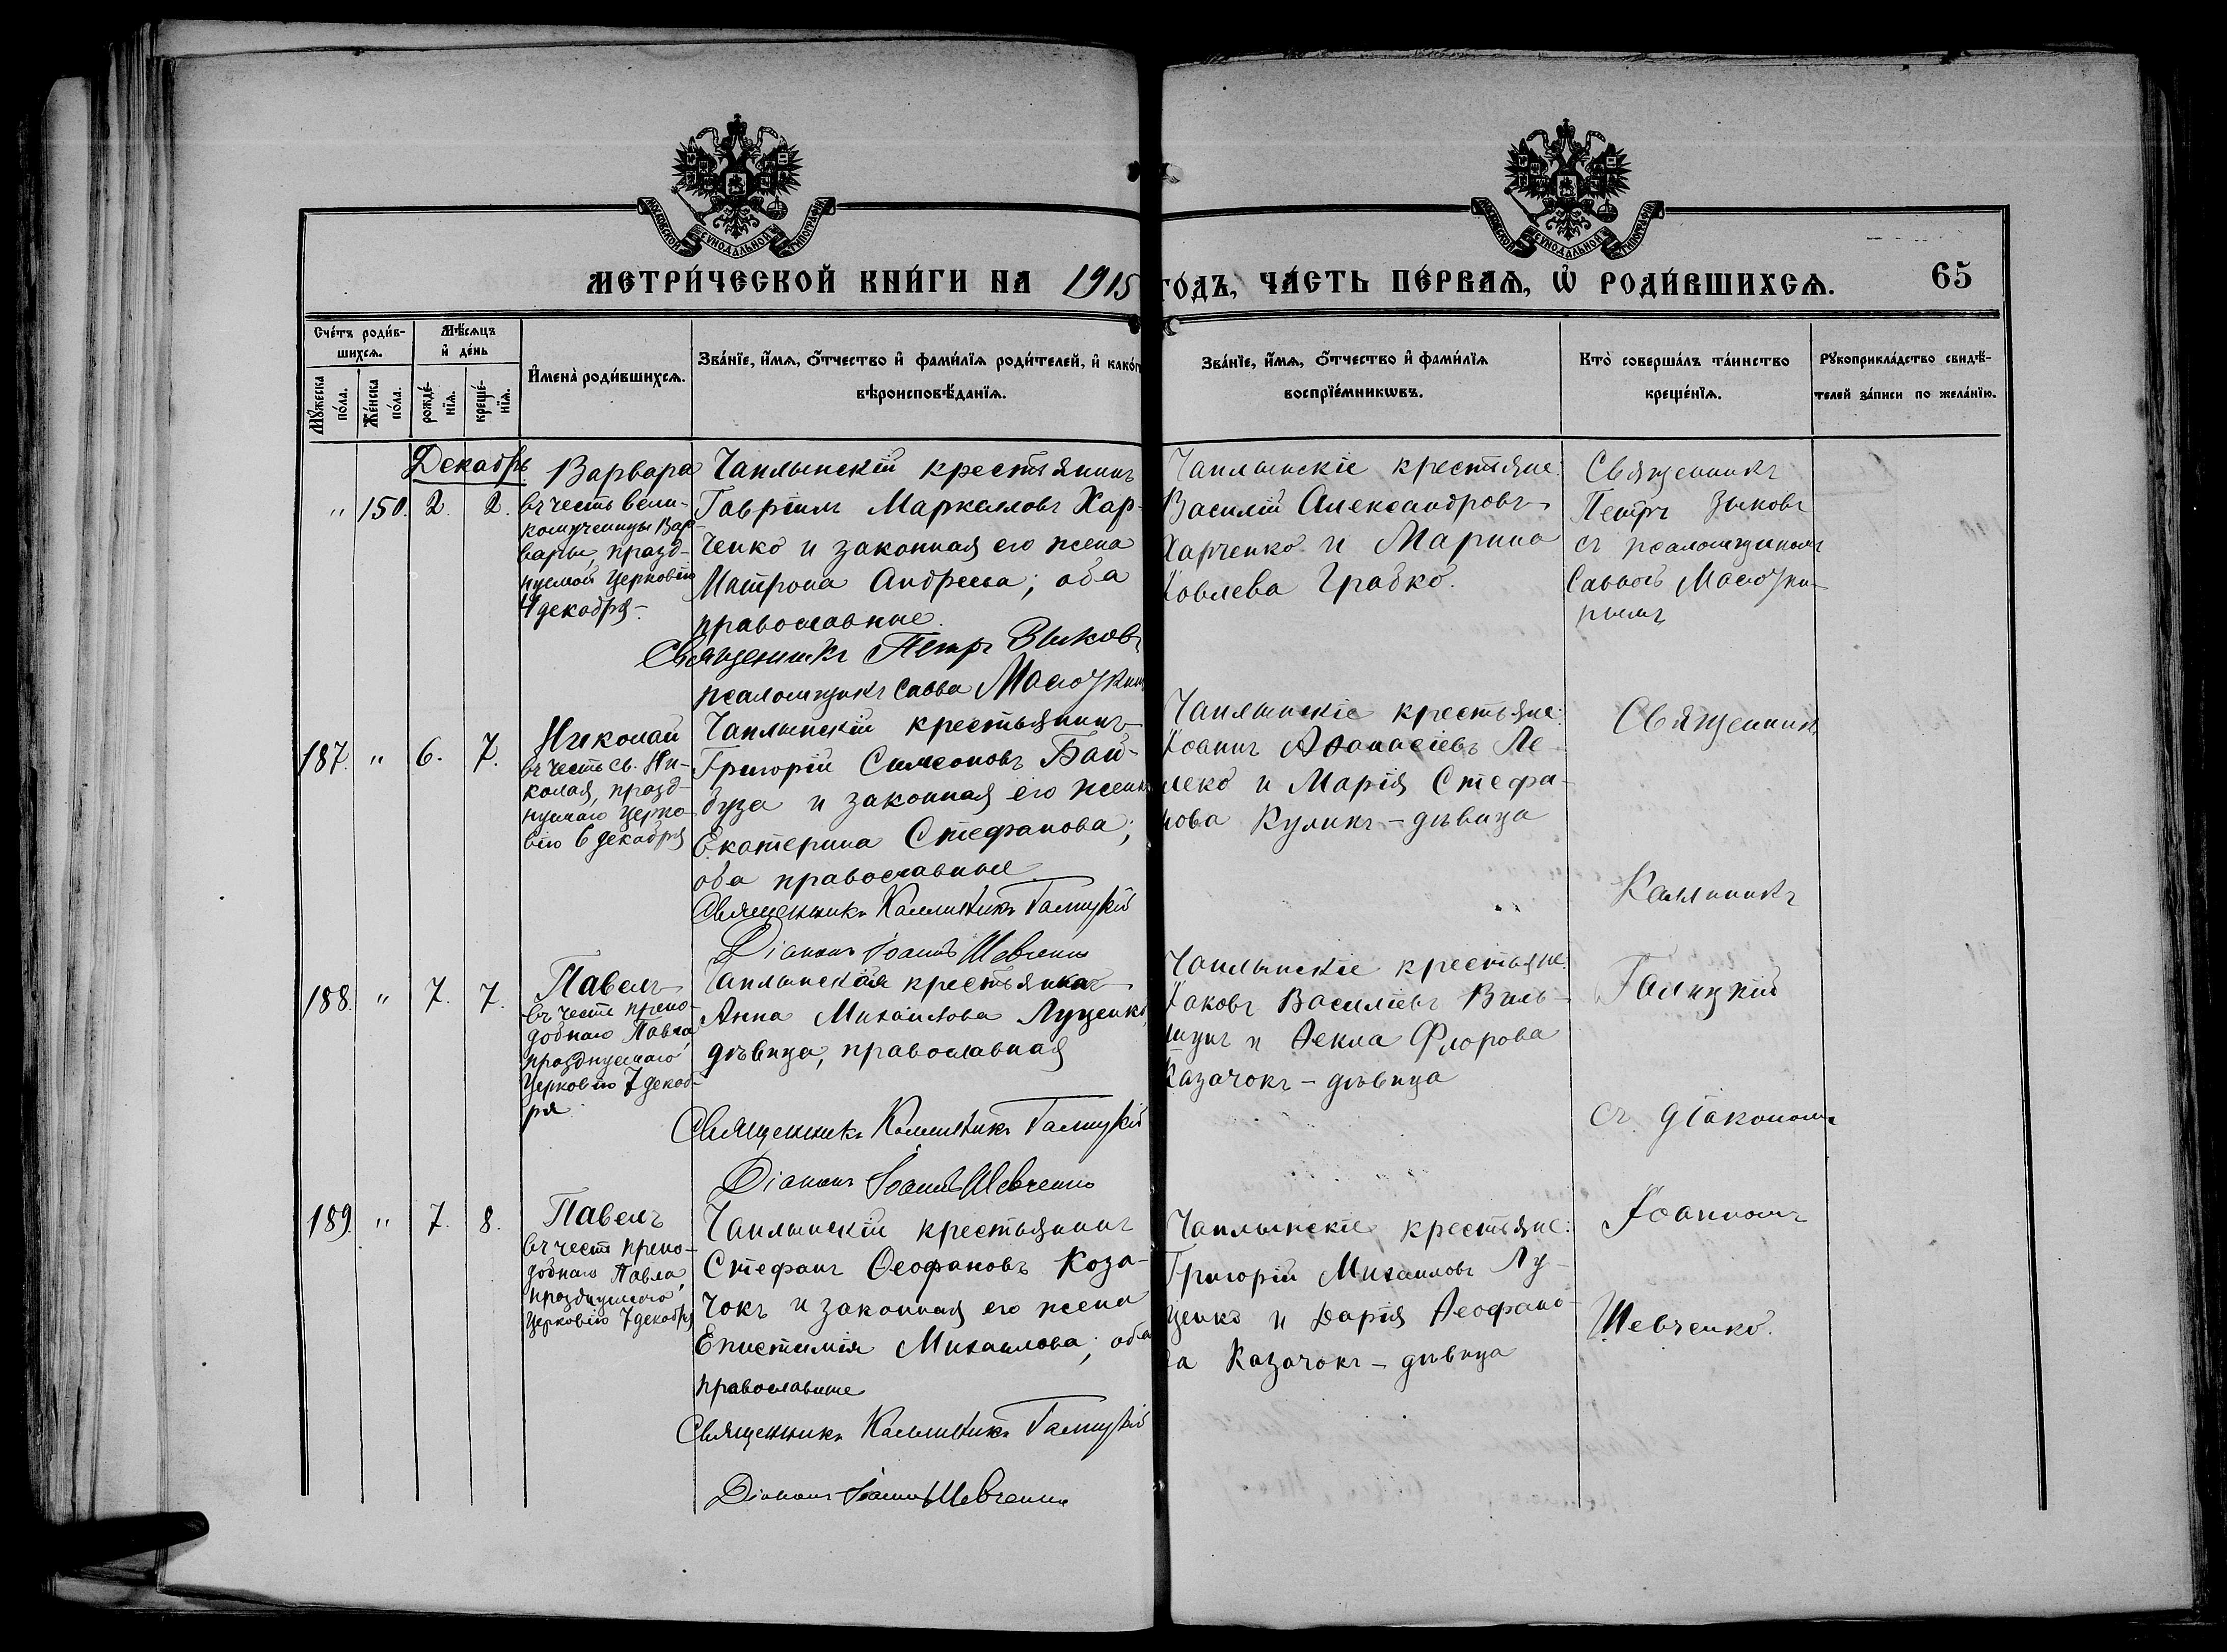 МОСКОВСКОЙ СѴНОДАЛЬНОЙ ТИПОГРАФІИ
МОСКОВСКОЙ СѴНОДАЛЬНОЙ ТИПОГРАФІИ
МЕТРИ́ЧЕСКОЙ КНИ́ГИ НА 1915
ГО́ДЪ, ЧА́СТЬ ПЕ́РВАѦ, Ѽ РОДИ́ВШИХСѦ. 65
Сче́тъ роди́в-
шихсѧ.
Мꙋ́жеска по́ла.
Же́нска по́ла.
Мѣ́сѧцъ
и҆ де́нь
рожде́-
нїѧ.
креще́-
нїѧ.
И҆мена̀ роди́вшихсѧ.
Зва́нїе, и҆́мѧ, ѻ҆́тчество и҆ фами́лїѧ роди́телей, и҆ како́г
вѣроисповѣ́данїѧ.
Зва́нїе, и҆́мѧ, ѻ҆́тчество и҆ фами́лїѧ
воспрїе́мникѡвъ.
Кто̀ соверша́лъ та́инство
креще́нїѧ.
Рꙋкоприкла́дство свидѣ́-
телей за́писи по жела́нїю.
Декабрь
" 150. 2. 2.
Варвара
въ честь вели-
комученицы Вар-
вары, празд-
нуемой Церковію
4 декабря.
Чаплынскій крестьянинъ
Гавріилъ Маркелловъ Хар-
ченко и законная его жена
Матрона Андреева; оба
православные.
Священникъ Петръ Зыковъ
псаломщикъ Савва
Чаплынскіе крестьяне:
Василій Александровъ
Харченко и Марина
Іовлева Грабко.
Священникъ
Петръ Зыковъ
съ псаломщикомъ
Саввою
187. " 6. 7.
Николай
въ честь св. Ни-
колая, празд-
нуемаго Церко-
вію 6 декабря
Чаплынскій крестьянинъ
Григорій Симеоновъ Бай-
буза и законная его жена
Екатерина Стефанова;
оба православные
Священникъ Каллиникъ Галицкій
Діаконъ Іоаннъ Шевченко
Чаплынскіе крестьяне:
Іоаннъ Аѳанасіевъ Ле-
леко и Марія Стефа-
нова Куликъ - дѣвица
Священникъ
Каллиникъ
188. " 7. 7.
Павелъ
въ честь препо-
добнаго Павла,
празднуемаго
Церковію 7 декаб-
ря.
Чаплынская крестьянка
Анна Михаилова Луценко,
дѣвица, православная
Священникъ Каллиникъ Галицкій
Діаконъ Іоаннъ Шевченко
Чаплынскіе крестьяне:
Іаковъ Василіевъ
и Ѳекла Флорова
Казачокъ - дѣвица
Галицкій
съ діакономъ
189. " 7. 8.
Павелъ
въ честь препо-
добнаго Павла,
празднуемаго
Церковію 7 декабря
Чаплынскій крестьянинъ
Стефанъ Ѳеофановъ Коза-
чокъ и законная его жена
Епистимія Михаилова; оба
православные
Священникъ Каллиникъ Галицкій
Діаконъ Іоаннъ Шевченко
Чаплынскіе крестьяне:
Григорій Михаиловъ Лу-
ценко и Дарія Ѳеофано-
ва Казачокъ - дѣвица
Іоанномъ
Шевченко.